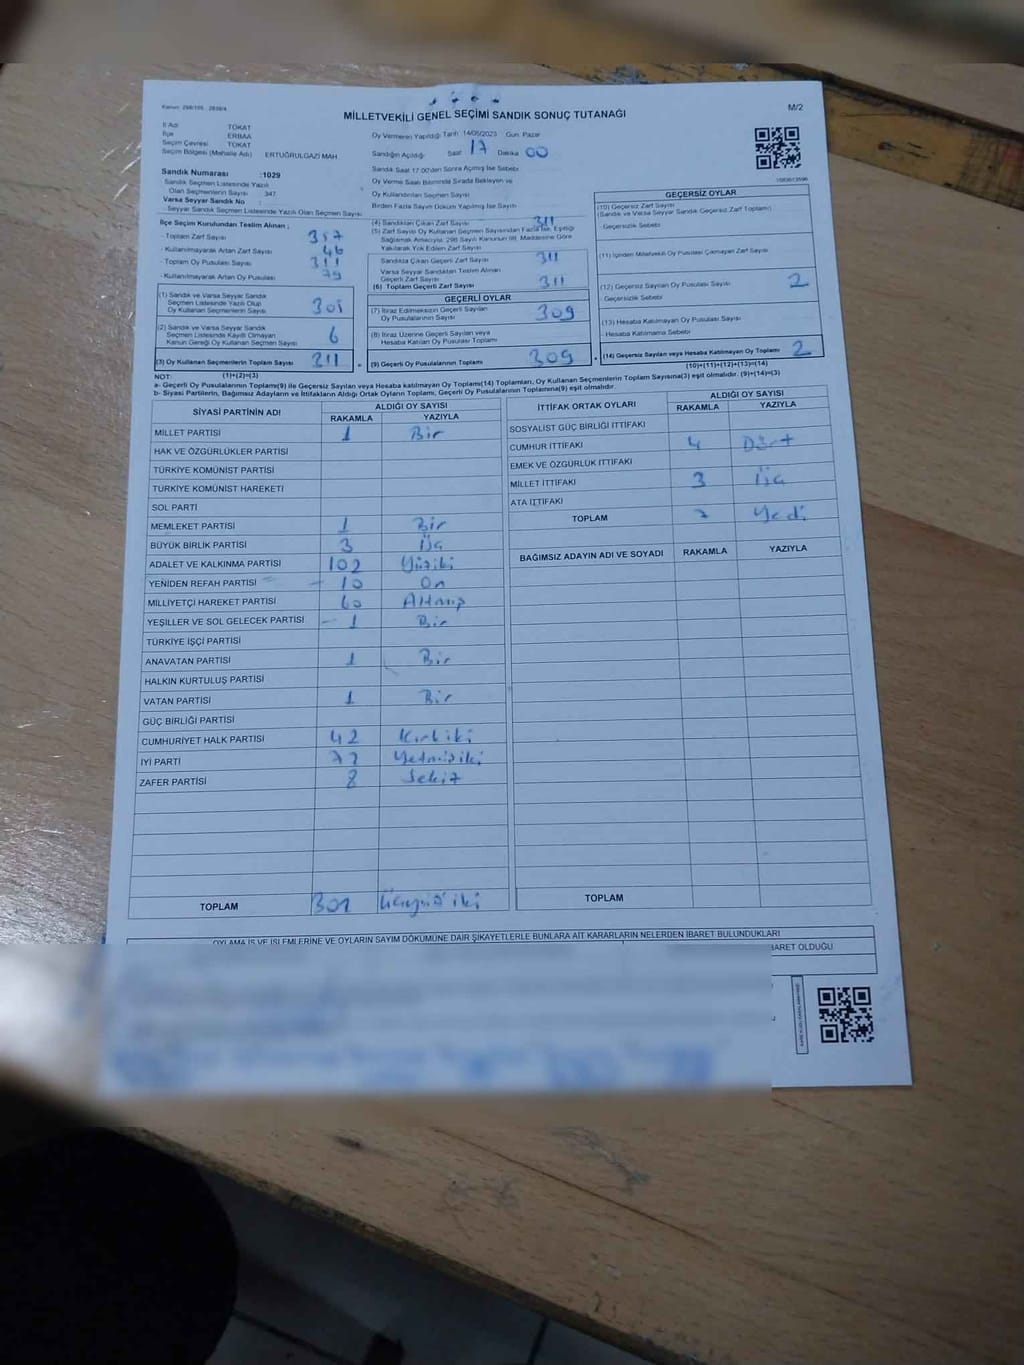 MİLLETVEKİLİ GENEL SEÇİMİ SANDIK SONUÇ TUTANAĞI
M/2
İl Adı TOKAT
İlçe ERBAA
Seçim Çevresi TOKAT
Seçim Bölgesi (Mahalle Adı) ERTUĞRULGAZİ MAH
Oy Vermenin Yapıldığı Tarih 14/05/2023 Gün Pazar
Sandığın Açıldığı Saat 17 Dakika 00
Sandık Numarası :1029
Sandık Seçmen Listesinde Yazılı
Olan Seçmenlerin Sayısı 347
Varsa Seyyar Sandık No
Seyyar Sandık Seçmen Listesinde Yazılı Olan Seçmen Sayısı
Sandık Saat 17:00'den Sonra Açılmış İse Sebebi
Oy Verme Saati Bitiminde Sırada Bekleyen ve
Oy Kullandırılan Seçmen Sayısı
Birden Fazla Sayım Döküm Yapılmış İse Sayısı
İlçe Seçim Kurulundan Teslim Alınan ;
- Toplam Zarf Sayısı 357
- Kullanılmayarak Artan Zarf Sayısı 46
- Toplam Oy Pusulası Sayısı
- Kullanılmayarak Artan Oy Pusulası 79
(1) Sandık ve Varsa Seyyar Sandık
Seçmen Listesinde Yazılı Olup
Oy Kullanan Seçmenlerin Sayısı 305
(2) Sandık ve Varsa Seyyar Sandık
Seçmen Listesinde Kayıtlı Olmayan
Kanun Gereği Oy Kullanan Seçmen Sayısı 6
(3) Oy Kullanan Seçmenlerin Toplam Sayısı 311
(1)+(2)=(3)
(4) Sandıktan Çıkan Zarf Sayısı 311
(5) Zarf Sayısı Oy Kullanan Seçmen Sayısından Fazla İse, Eşitliği
Sağlamak Amacıyla; 298 Sayılı Kanunun 98. Maddesine Göre
Yakılarak Yok Edilen Zarf Sayısı
Sandıkta Çıkan Geçerli Zarf Sayısı 311
Varsa Seyyar Sandıktan Teslim Alınan
Geçerli Zarf Sayısı
(6) Toplam Geçerli Zarf Sayısı 311
GEÇERLİ OYLAR
(7) İtiraz Edilmeksizin Geçerli Sayılan
Oy Pusulalarının Sayısı 309
(8) İtiraz Üzerine Geçerli Sayılan veya
Hesaba Katılan Oy Pusulası Toplamı
(9) Geçerli Oy Pusulalarının Toplamı 309
GEÇERSİZ OYLAR
(10) Geçersiz Zarf Sayısı
(Sandık ve Varsa Seyyar Sandık Geçersiz Zarf Toplamı)
Geçersizlik Sebebi
(11) İçinden Milletvekili Oy Pusulası Çıkmayan Zarf Sayısı
(12) Geçersiz Sayılan Oy Pusulası Sayısı 2
Geçersizlik Sebebi
(13) Hesaba Katılmayan Oy Pusulası Sayısı
Hesaba Katılmama Sebebi
(14) Geçersiz Sayılan veya Hesaba Katılmayan Oy Toplamı 2
(10)+(11)+(12)+(13)=(14)
NOT:
a- Geçerli Oy Pusulalarının Toplamı(9) ile Geçersiz Sayılan veya Hesaba katılmayan Oy Toplamı(14) Toplamları, Oy Kullanan Seçmenlerin Toplam Sayısına(3) eşit olmalıdır. (9)+(14)=(3)
b- Siyasi Partilerin, Bağımsız Adayların ve İttifakların Aldığı Ortak Oyların Toplamı, Geçerli Oy Pusulalarının Toplamına(9) eşit olmalıdır.
SİYASİ PARTİNİN ADI ALDIĞI OY SAYISI
RAKAMLA YAZIYLA
MİLLET PARTİSİ 1 Bir
HAK VE ÖZGÜRLÜKLER PARTİSİ
TÜRKİYE KOMÜNİST PARTİSİ
TÜRKİYE KOMÜNİST HAREKETİ
SOL PARTİ
MEMLEKET PARTİSİ 1 Bir
BÜYÜK BİRLİK PARTİSİ 3 Üç
ADALET VE KALKINMA PARTİSİ 102 Yüziki
YENİDEN REFAH PARTİSİ 10 On
MİLLİYETÇİ HAREKET PARTİSİ 60 Altmış
YEŞİLLER VE SOL GELECEK PARTİSİ 1 Bir
TÜRKİYE İŞÇİ PARTİSİ
ANAVATAN PARTİSİ 1 Bir
HALKIN KURTULUŞ PARTİSİ
VATAN PARTİSİ 1 Bir
GÜÇ BİRLİĞİ PARTİSİ
CUMHURİYET HALK PARTİSİ 42 Kırkiki
İYİ PARTİ 72 Yetmişiki
ZAFER PARTİSİ 8 Sekiz
TOPLAM 302 Üçyüz iki
İTTİFAK ORTAK OYLARI ALDIĞI OY SAYISI
RAKAMLA YAZIYLA
SOSYALİST GÜÇ BİRLİĞİ İTTİFAKI
CUMHUR İTTİFAKI 4 Dört
EMEK VE ÖZGÜRLÜK İTTİFAKI
MİLLET İTTİFAKI 3 Üç
ATA İTTİFAKI
TOPLAM 7 Yedi
BAĞIMSIZ ADAYIN ADI VE SOYADI RAKAMLA YAZIYLA
TOPLAM
OYLAMA İŞ VE İŞLEMLERİNE VE OYLARIN SAYIM DÖKÜMÜNE DAİR ŞİKAYETLERLE BUNLARA AİT KARARLARIN NELERDEN İBARET BULUNDUKLARI
İBARET OLDUĞU